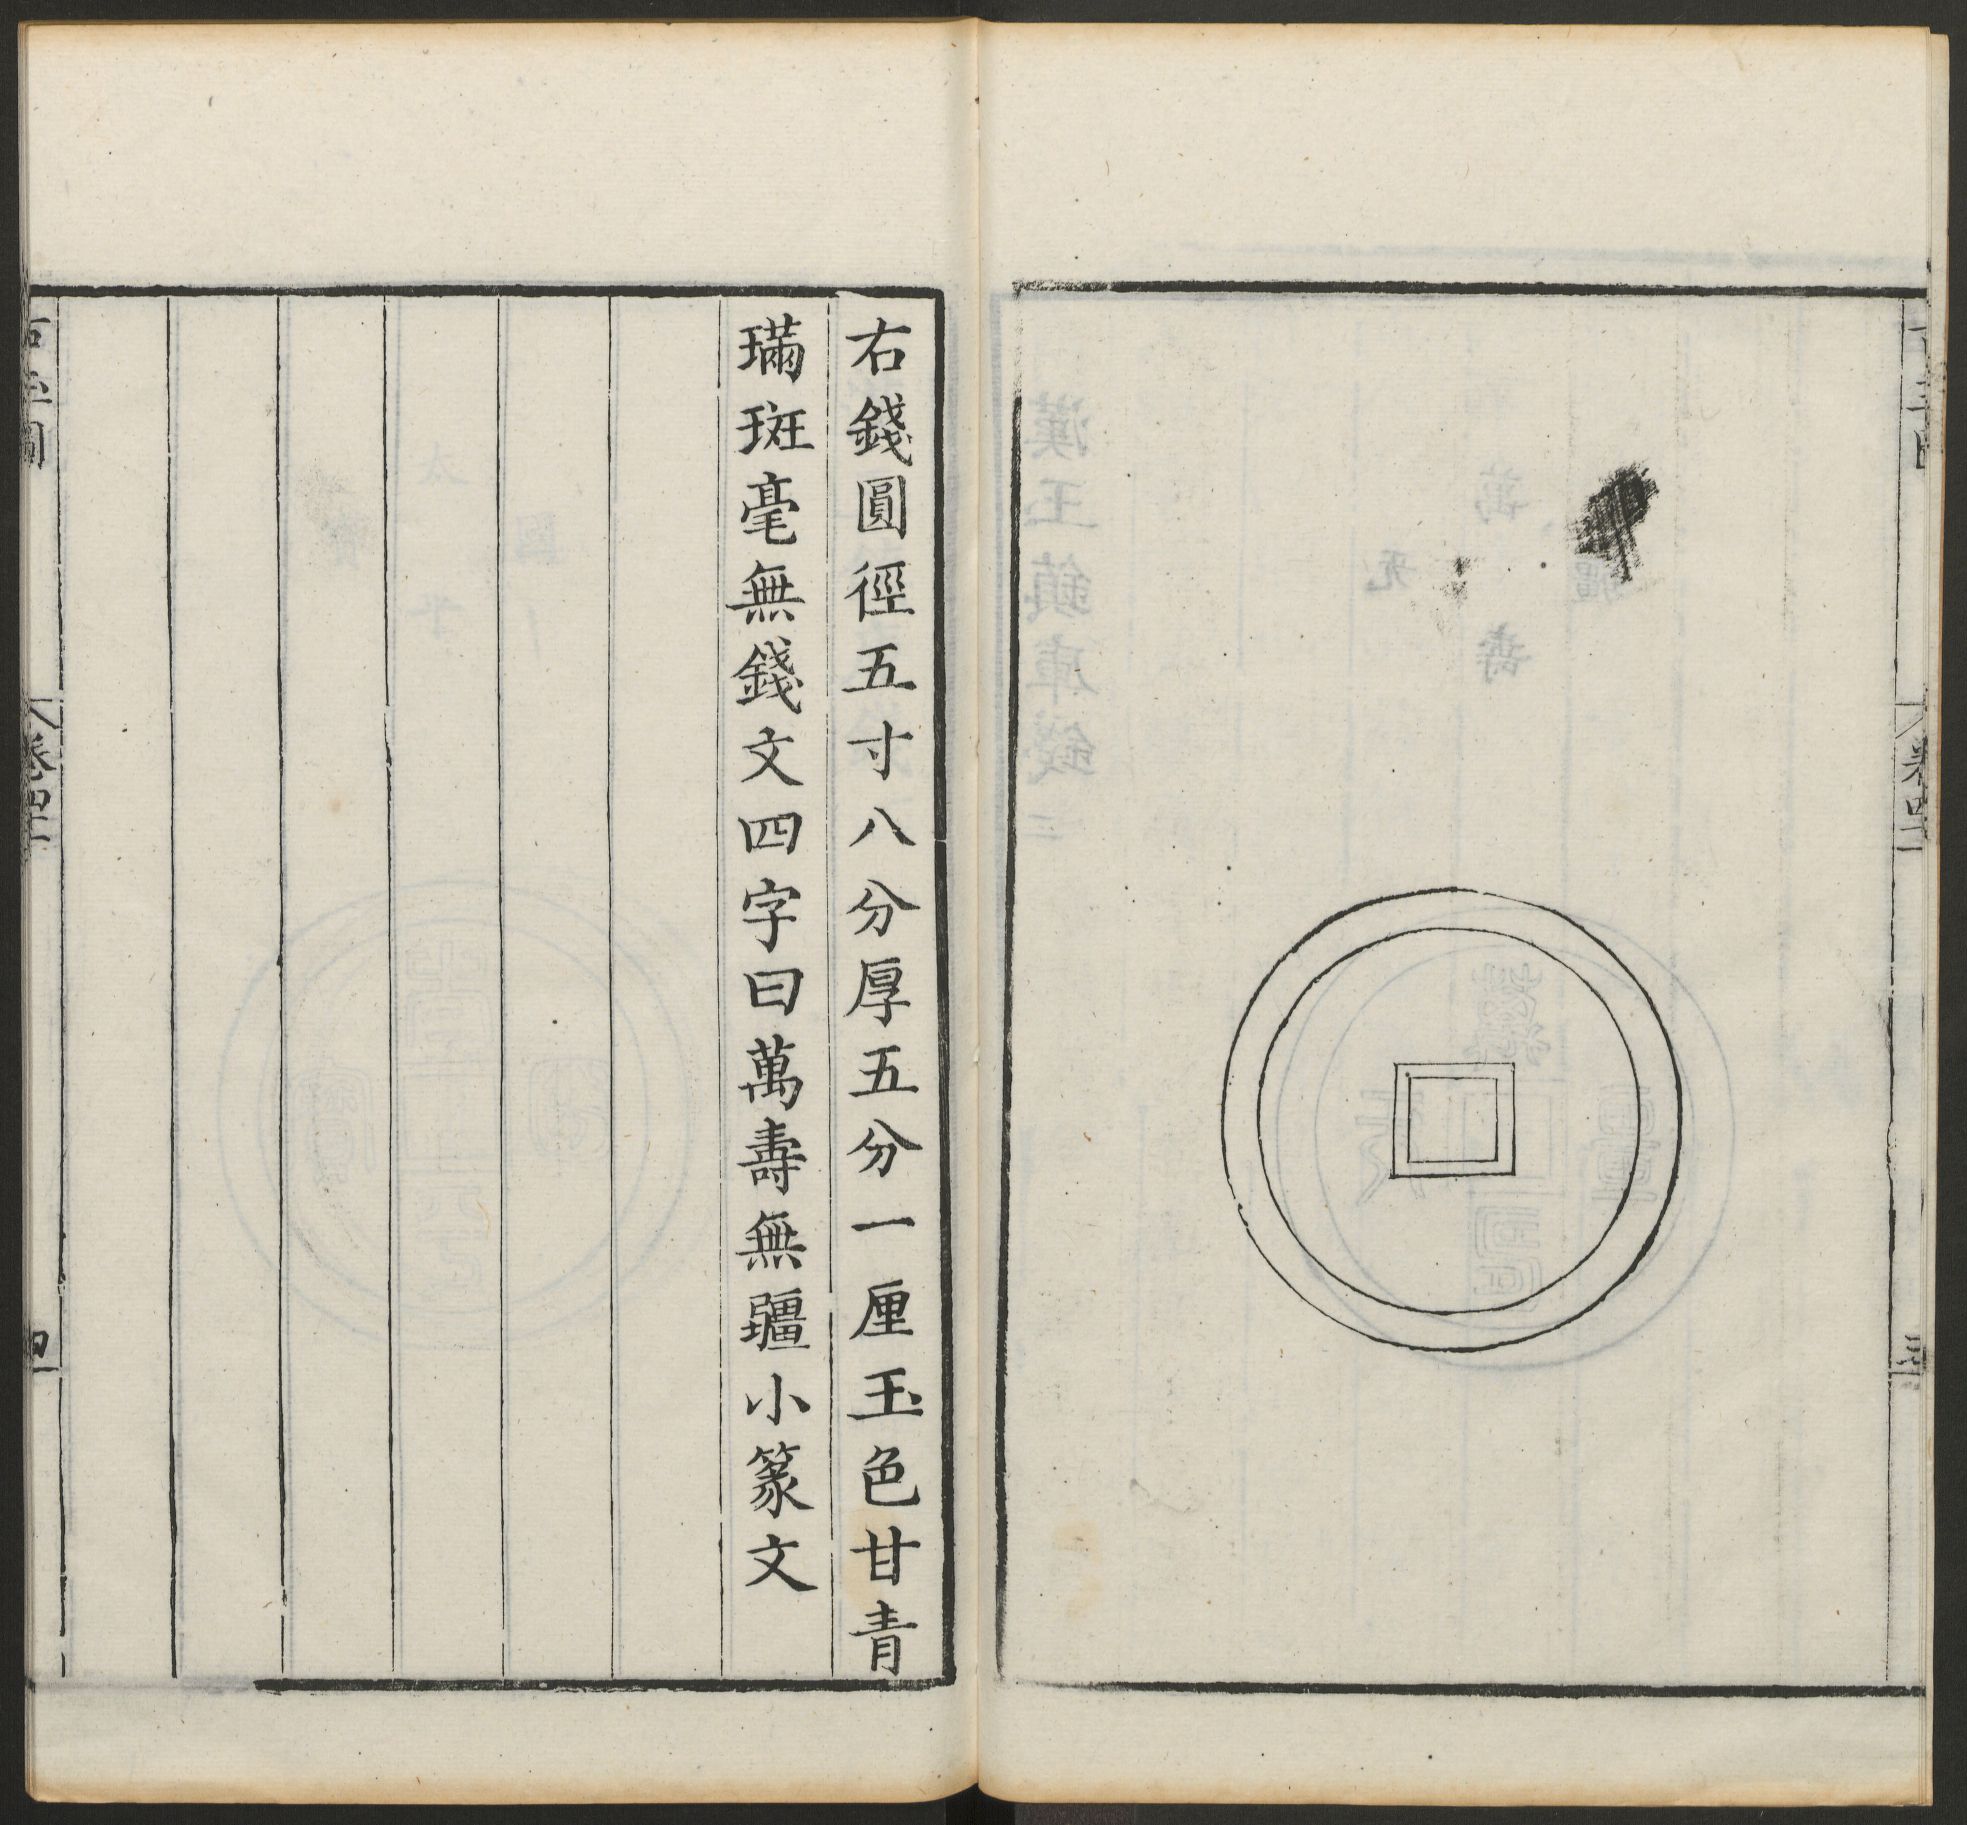 右錢圓徑五寸八分厚五分一厘玉色甘青
璊斑毫無錢文四字曰萬壽無疆小篆文